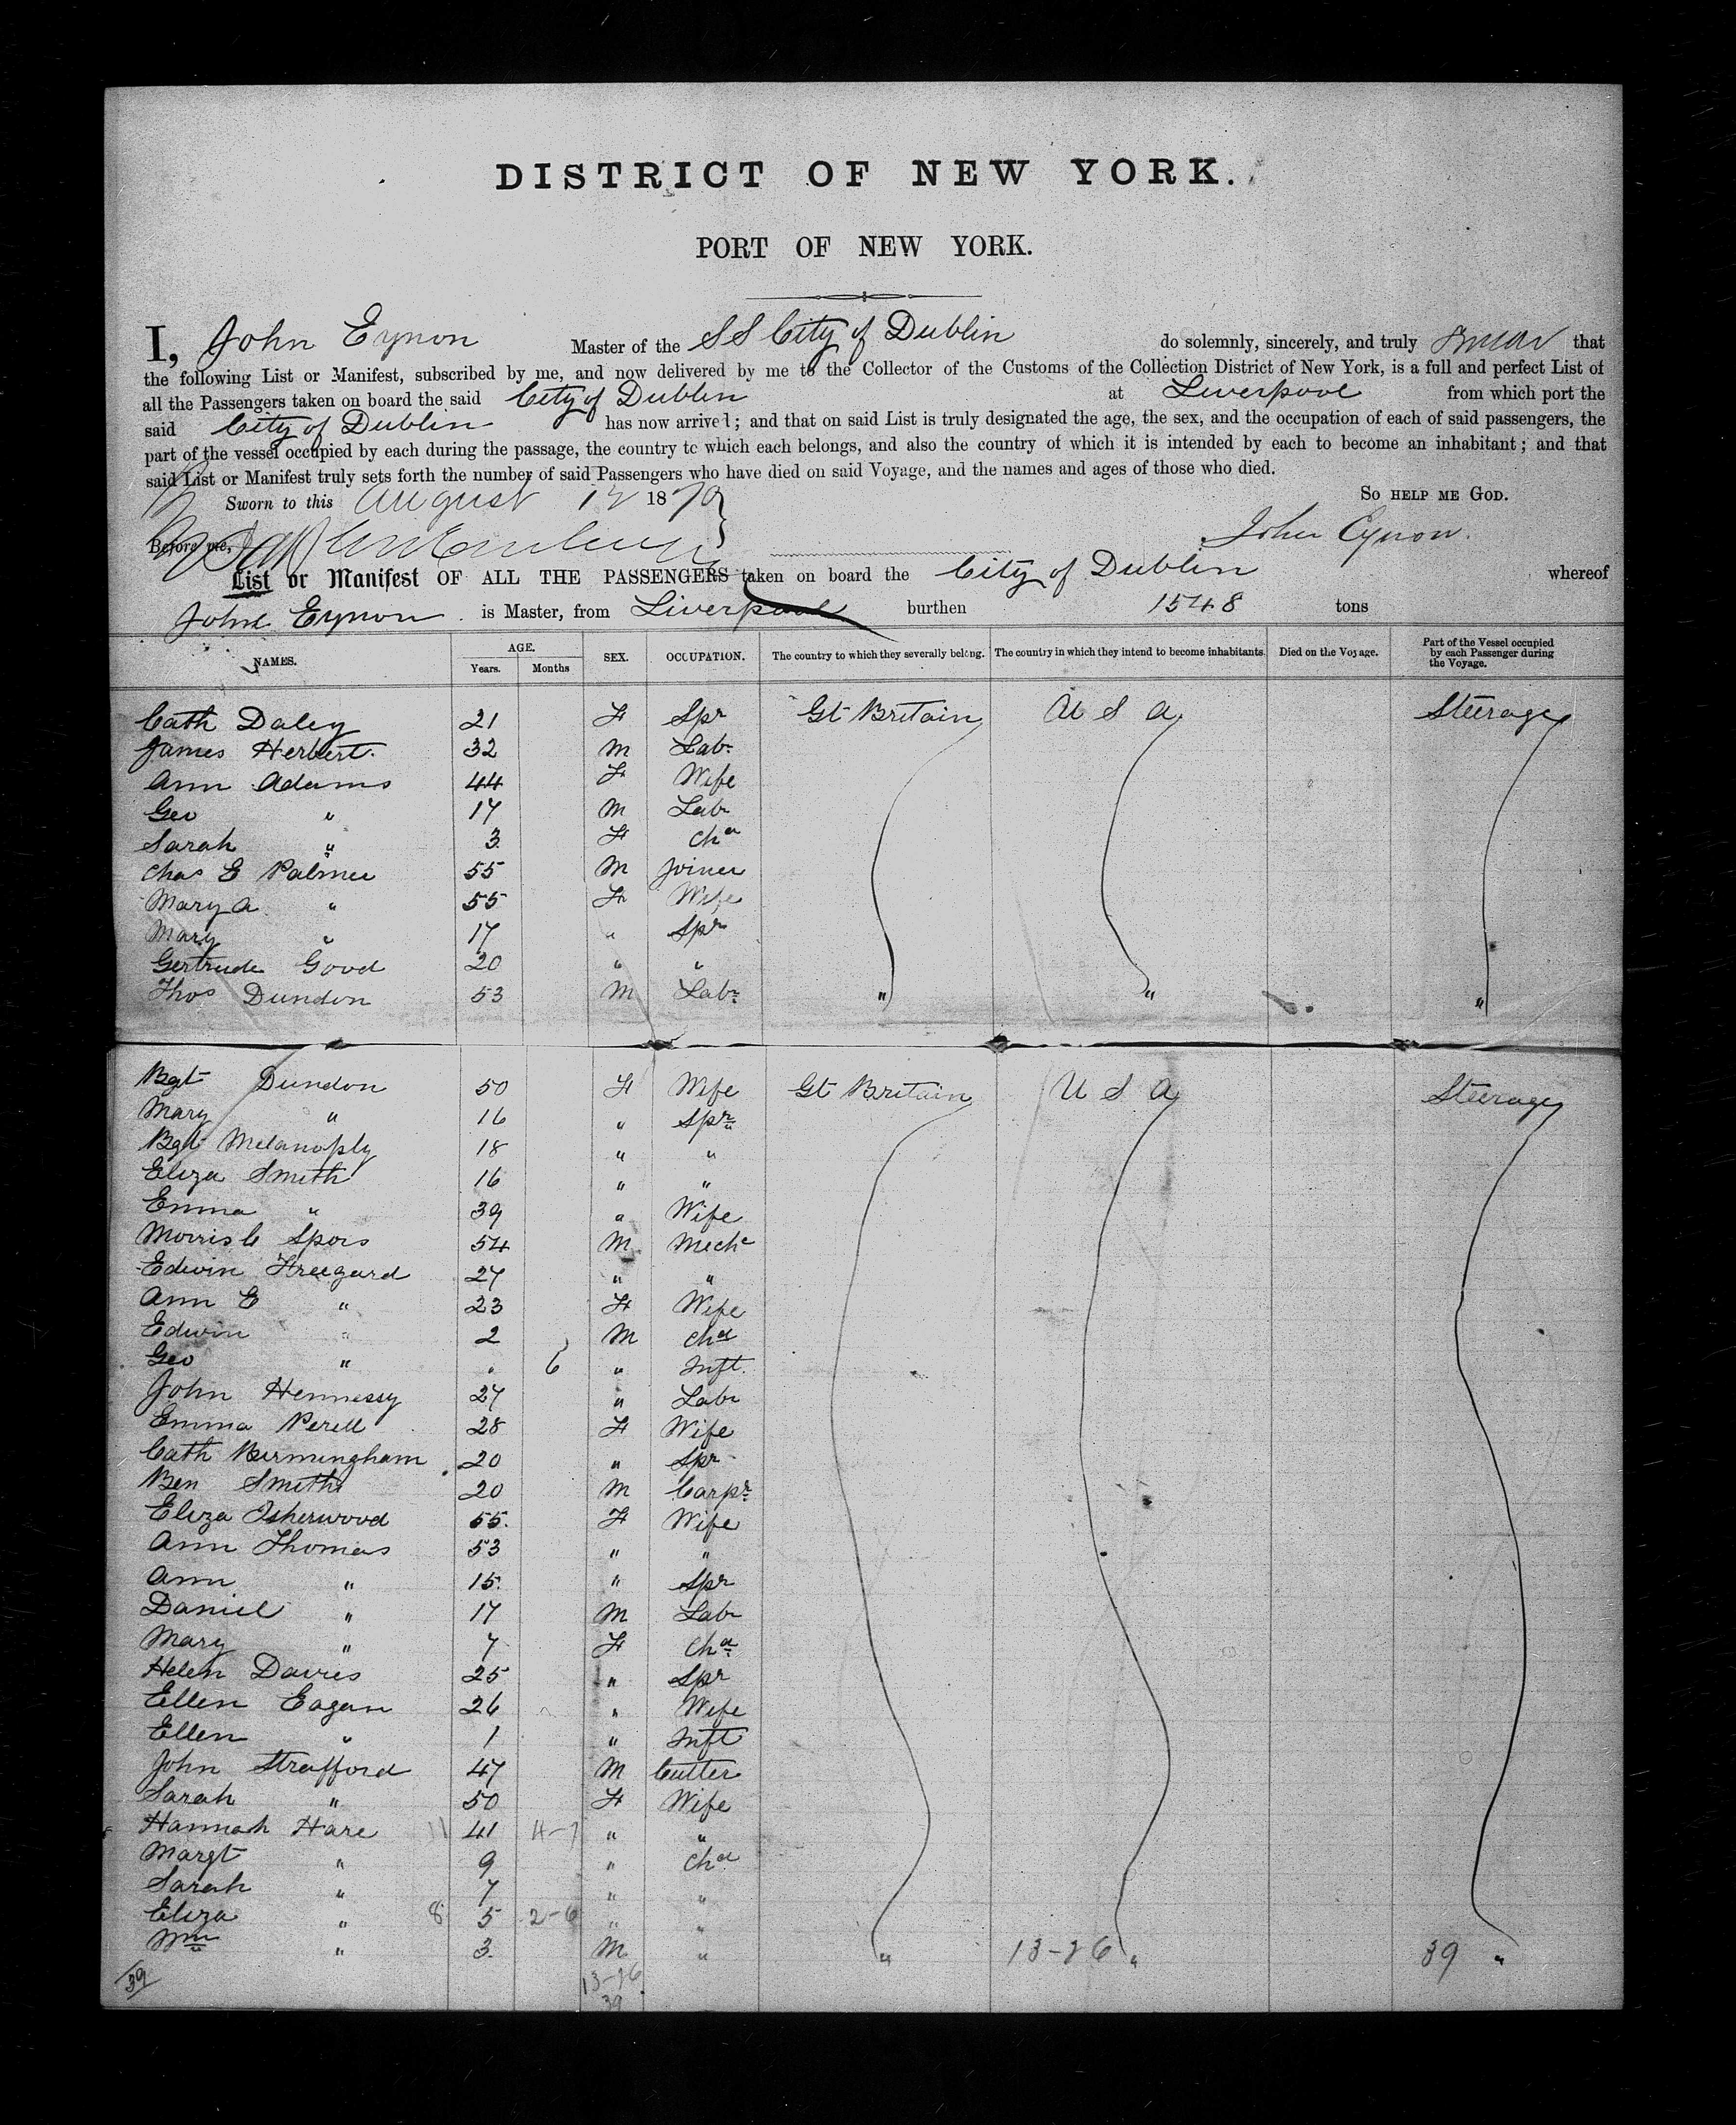 DISTRICT OF NEW YORK.
PORT OF NEW YORK.
I, John Eynon Master of the SS City of Dublin do solemnly, sincerely, and truly swear that
the following List or Manifest, subscribed by me, and now delivered by me to the Collector of the Customs of the Collection District of New York, is a full and perfect List of
all the Passengers taken on board the said City of Dublin at Liverpool from which port the
said City of Dublin has now arrived; and that on said List is truly designated the age, the sex, and the occupation of each of said passengers, the
part of the vessel occupied by each during the passage, the country to which each belongs, and also the country of which it is intended by each to become an inhabitant; and that
said List or Manifest truly sets forth the number of said Passengers who have died on said Voyage, and the names and ages of those who died.
Sworn to this August 1870 So help me God.
Before me, John Eynon.
List or Manifest OF ALL THE PASSENGERS taken on board the City of Dublin whereof
John Eynon is Master, from Liverpool burthen 1548 tons
NAMES. AGE. Years. Months SEX. OCCUPATION. The country to which they severally belong. The country in which they intend to become inhabitants. Died on the Voyage. Part of the Vessel occupied by each Passenger during the Voyage.
Cath Daley 21 F Spr Gt Britain U S A Steerage
James Herbert 32 M Labr
Ann Adams 44 F Wife
Geo " 17 M Labr
Sarah " 3 F Chd
Chas E Palmer 55 M Joiner
Mary A " 55 F Wife
Mary " 17 " Spr
Gertrude Good 20 " "
Thos Dundon 53 M Labr " " "
Bgt Dundon 50 F Wife Gt Britain U S A Steerage
Mary " 16 " Spr
Bgt Melanoply 18 " "
Eliza Smith 16 " "
Emma " 39 " Wife
Morris C Spors 54 M Mechc
Edwin Freegard 27 " "
Ann E " 23 F Wife
Edwin " 2 M Chd
Geo " 6 " Inft.
John Hennessy 27 " Labr
Emma Perell 28 F Wife
Cath Birmingham 20 " Spr
Ben Smith 20 M Carpr
Eliza Isherwood 55 F Wife
Ann Thomas 53 " "
Ann " 15 " Spr
Daniel " 17 M Labr
Mary " 7 F Chd
Helen Davies 25 " Spr
Ellen Eagan 26 " Wife
Ellen " 1 " Inft
John Strafford 47 M Cutter
Sarah " 50 F Wife
Hannah Hare 11 41 11-7 " "
Margt " 9 " Chd
Sarah " 7 " "
Eliza " 8 5 2-6 " "
Wm " 3 M " " 13-26 " 39 "
39 13-26
39